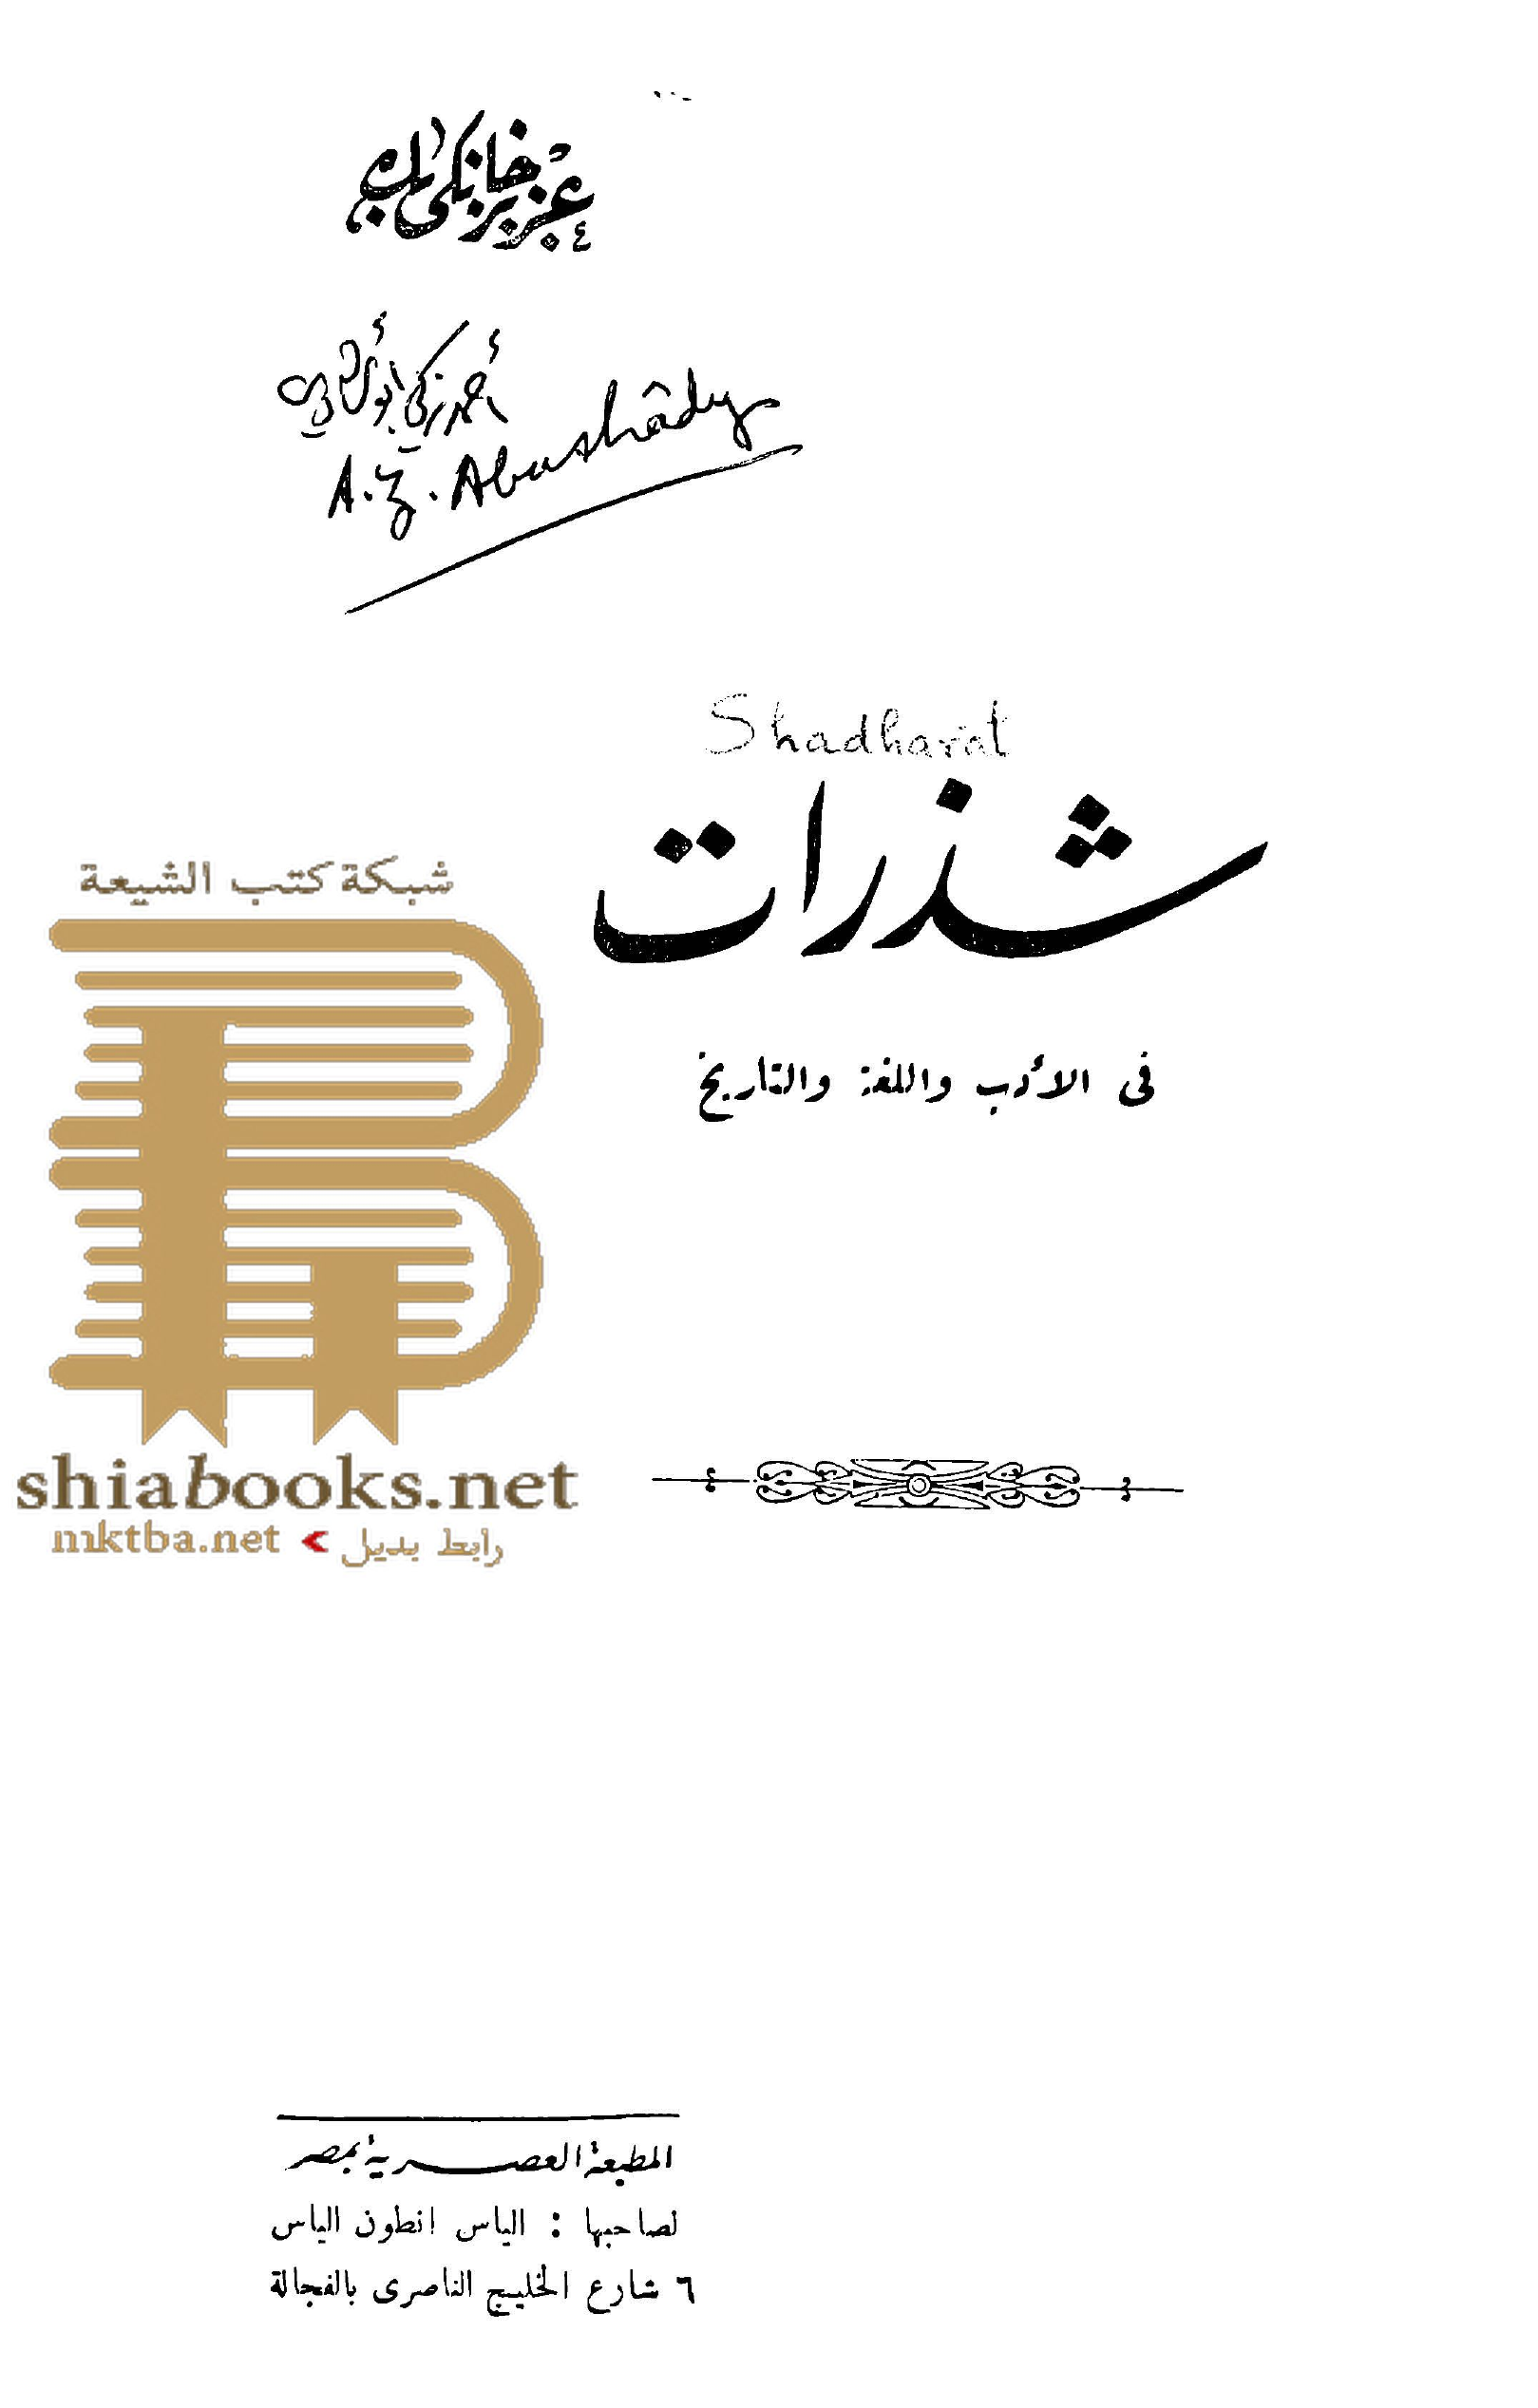 عزيز خانكى بك
أحمد زكي أبو شادي
A. Z. Abushâdy
Shadharat
شذرات
فى الأدب واللغة والتاريخ
شبكة كتب الشيعة
shiabooks.net
mktba.net < رابط بديل
المطبعة العصرية بمصر
لصاحبها : الياس انطون الياس
٦ شارع الخليج الناصرى بالفجالة